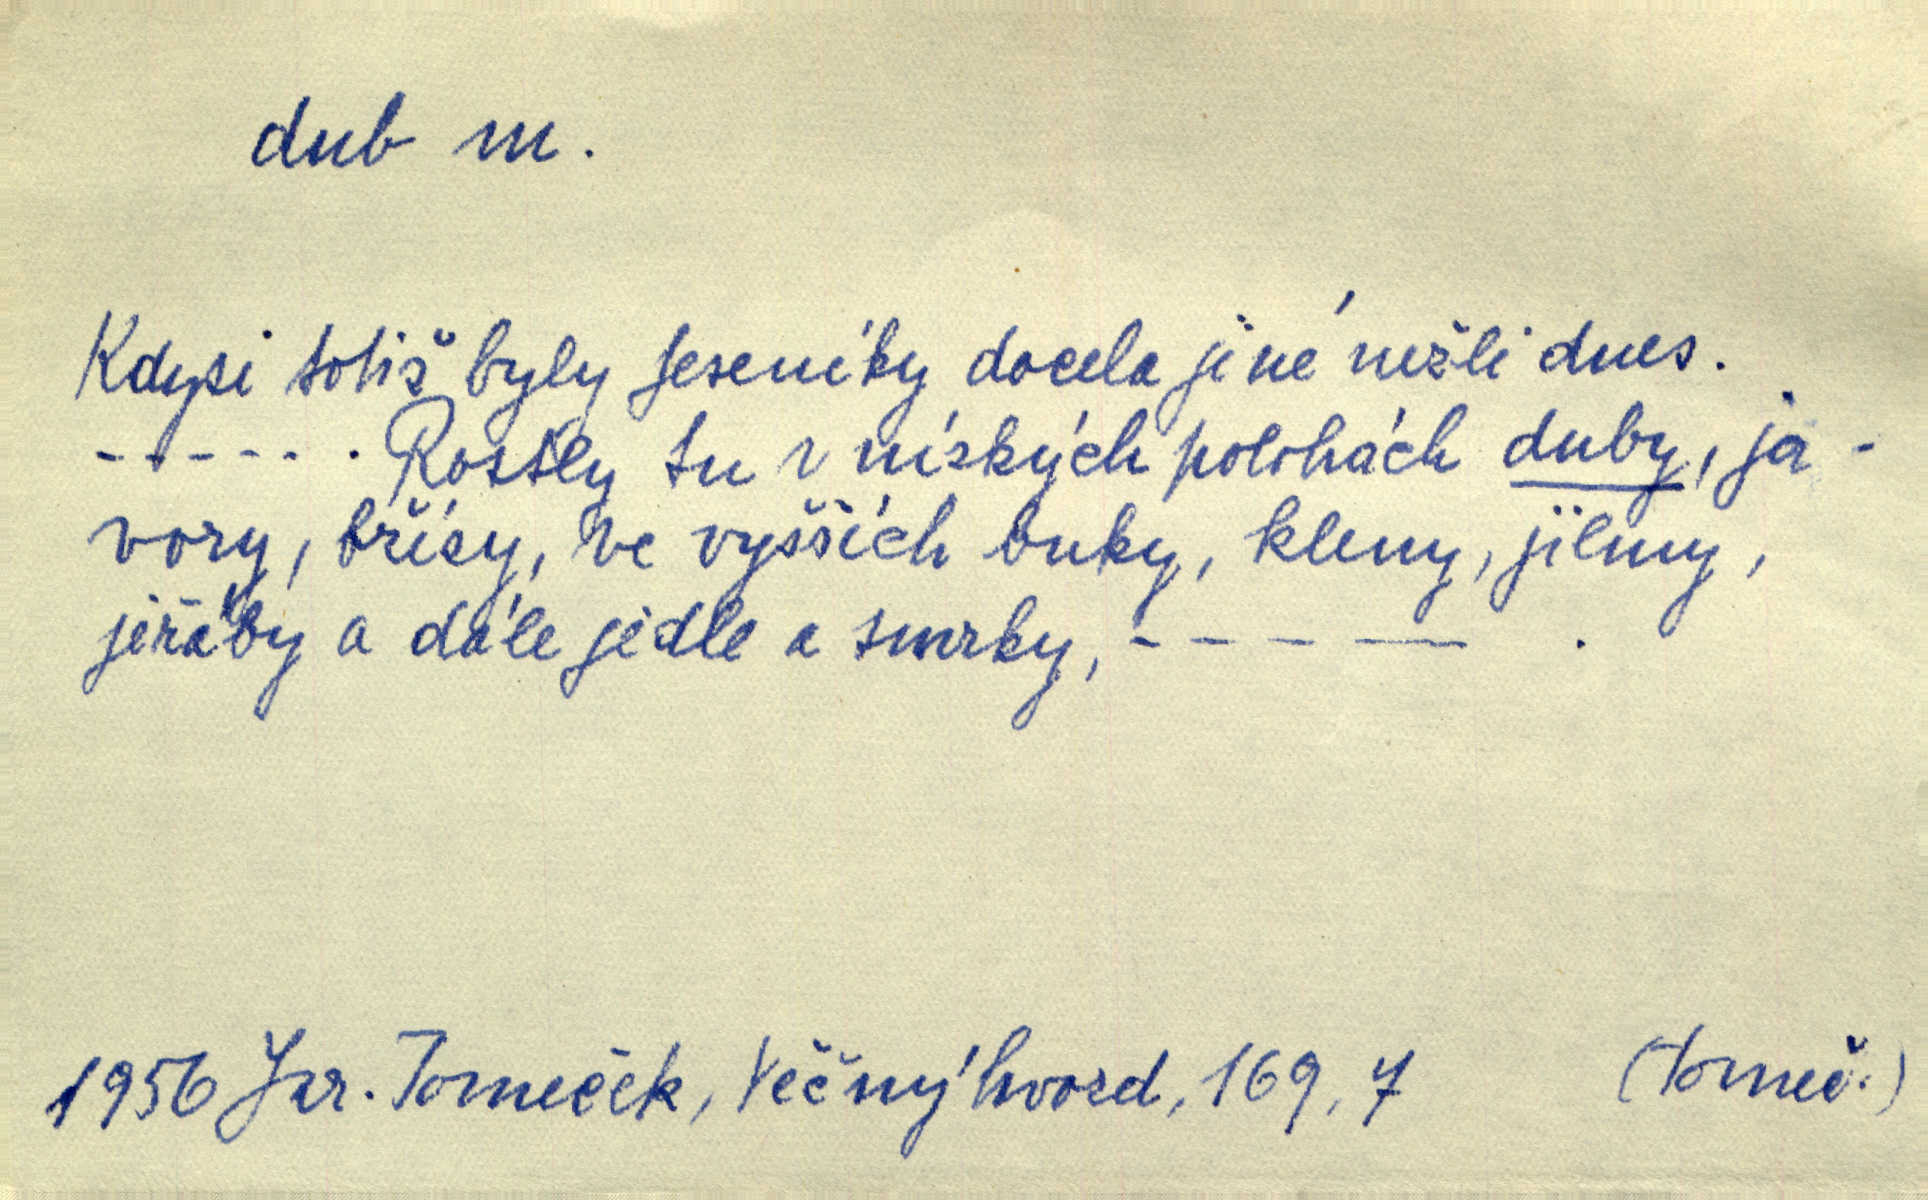 dub m.
Kdysi totiž byly Jeseníky docela jiné nežli dnes.
------. Rostly tu v nízkých polohách duby, ja-
vory, břízy, ve vyšších buky, kleny, jilmy,
jeřáby a dále jedle a smrky, ---- .
1956 Jar. Tomeček, Věčný hvozd, 169, 7 (Tomeč.)